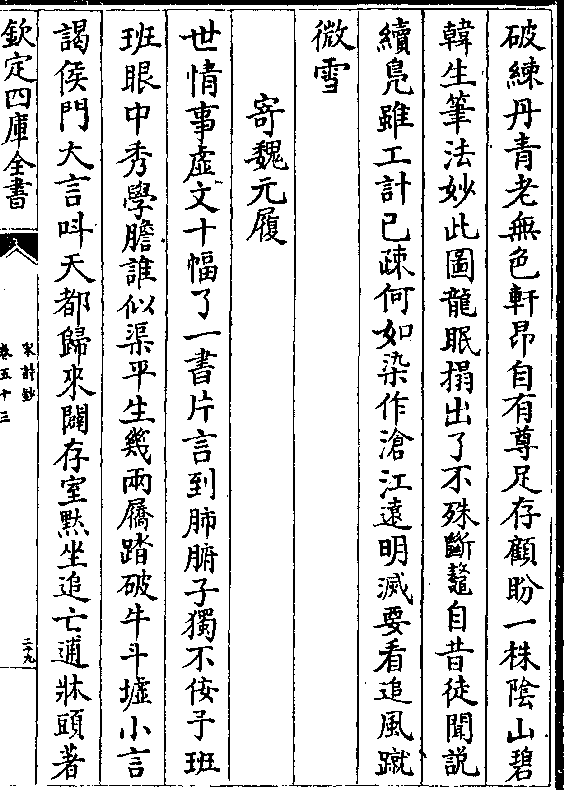 破練丹青老無色軒昂自有尊足存顧盼一株陰山碧
韓生筆法妙此圖龍眠搨出了不殊斷鼇自昔徒聞説
續鳧雖工計已疎何如染作滄江遠明滅要看追風蹴
微雪
寄魏元履
世情事虛文十幅了一書片言到肺腑子獨不侫予班
班眼中秀學膽誰似渠平生幾兩屩踏破牛斗墟小言
謁侯門大言呌天都歸來闢存室黙坐追亡逋牀頭著
欽定四庫全書
宋詩鈔
卷五十三
二十九